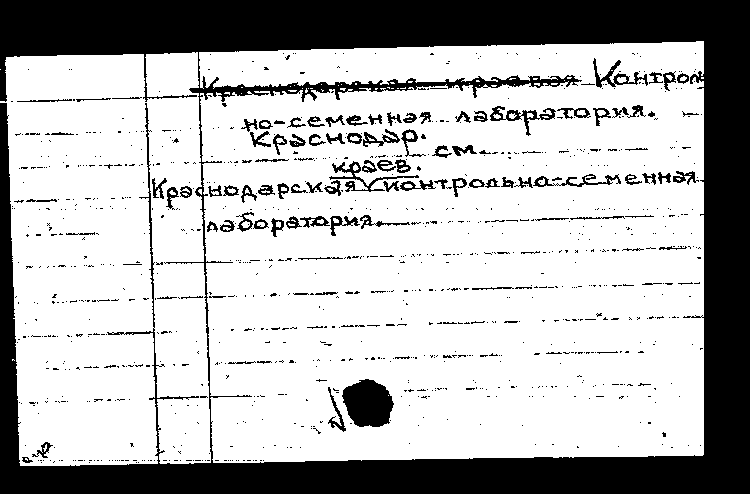 Краснодарская краевая Контроль
но-семенная лаборатория.
Краснодар.
см.
краев.
Краснодарская контрольно-семенная
лаборатория.